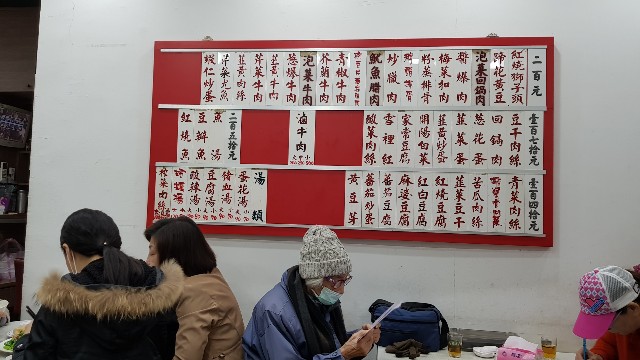 二百元
紅燒獅子頭
蹄花黃豆
泡菜回鍋肉
醬爆肉
梅菜扣肉
粉蒸排骨
炒臘肉
魷魚臘肉
青椒牛肉
芥蘭牛肉
泡菜牛肉
蔥爆牛肉
芹菜牛肉
韭黃牛肉
韭黃肉絲
芹菜尤魚
蝦仁炒蛋
壹百七拾元
豆干肉絲
回鍋肉
蔥花蛋
韭菜蛋
韭黃炒蛋
家常豆腐
雪裡紅
酸菜肉絲
滷牛肉
二百五拾元
魚湯
豆瓣魚
紅燒魚
壹百四拾元
青菜肉絲
苦瓜肉絲
韭菜豆干
紅燒豆腐
紅白豆腐
麻婆豆腐
番茄豆腐
番茄炒蛋
黃豆芽
湯類
蛋花湯
豬血湯
豆腐湯
酸辣湯
榨菜肉絲